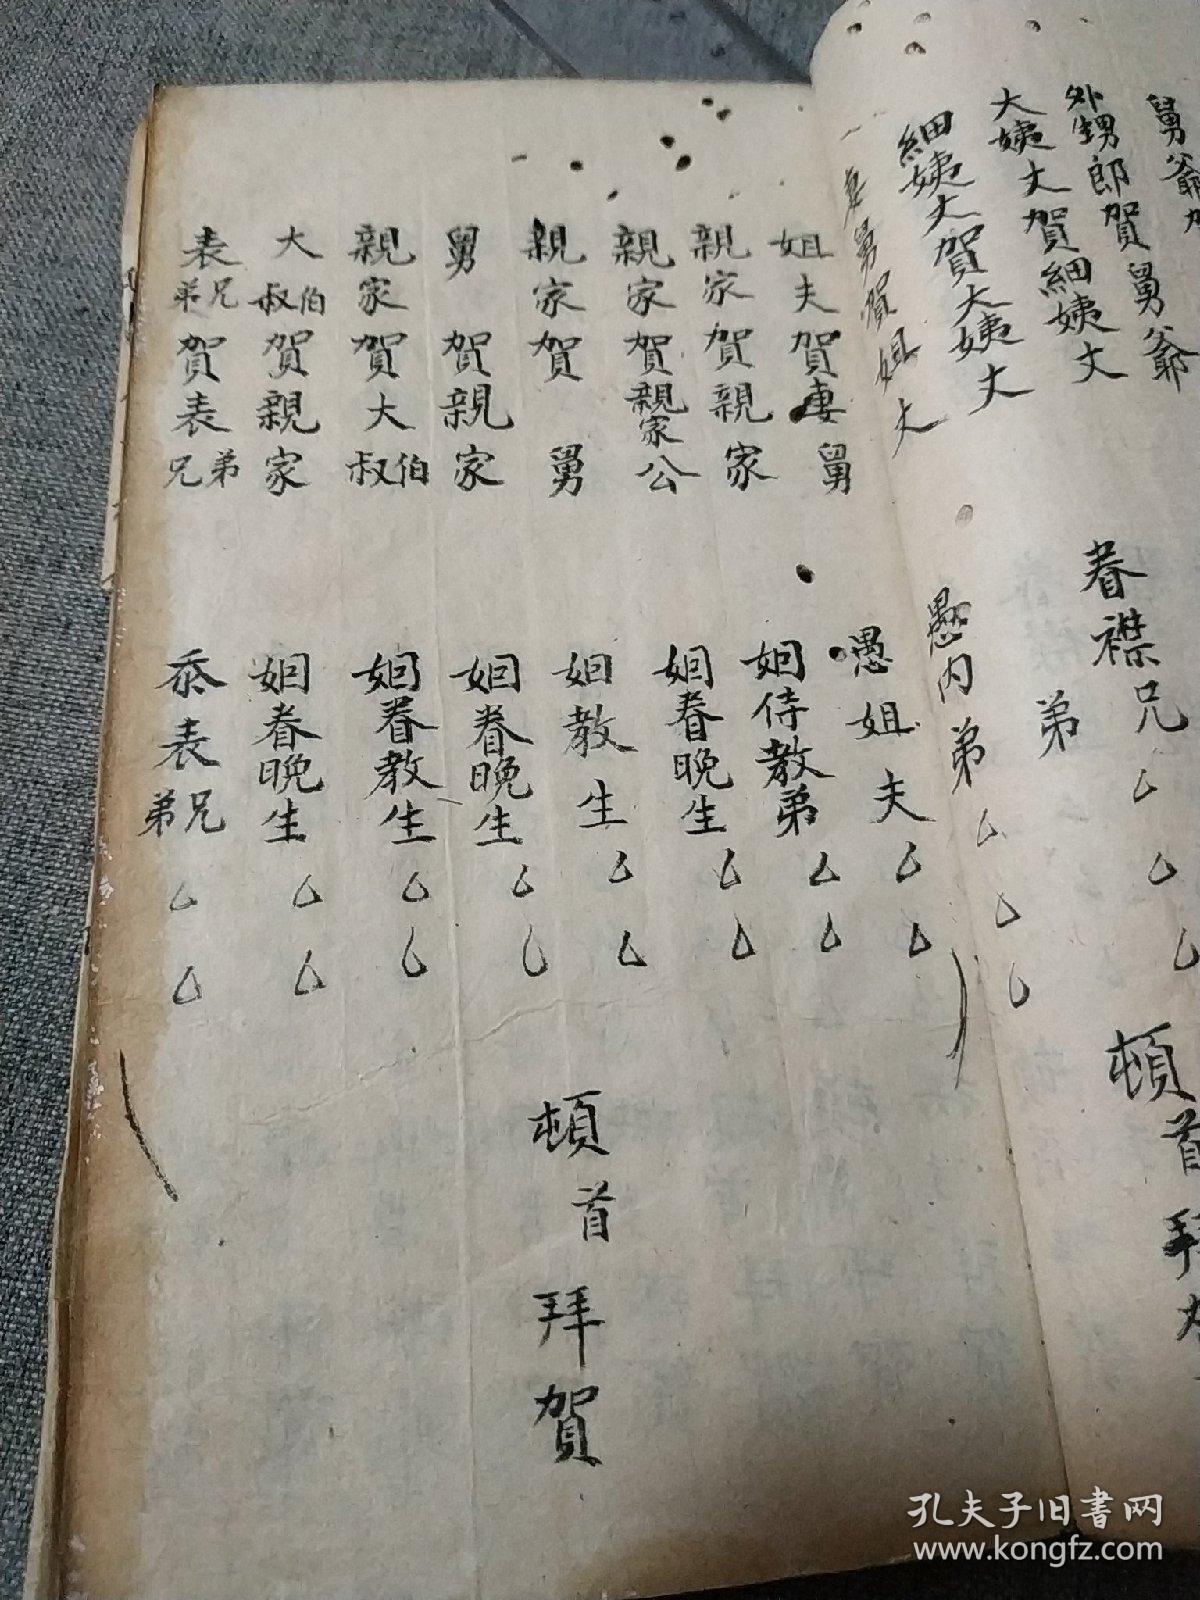 舅爺
外甥郎賀舅爺
大姨丈賀細姨丈
細姨丈賀大姨丈
妻舅賀姐丈
眷襟兄弟厶厶
愚内弟厶厶厶
頓首拜
姐夫賀妻舅 愚姐夫厶厶
親家賀親家 姻侍教弟厶厶
親家賀親家公 姻眷晚生厶厶
親家賀舅 姻教生厶厶
舅賀親家 姻眷晚生厶厶
親家賀大伯叔 姻眷教生厶厶
大伯叔賀親家 姻眷晚生厶厶
表兄弟賀表弟兄 忝表兄弟厶厶
頓首拜賀
孔夫子旧书网
www.kongfz.com